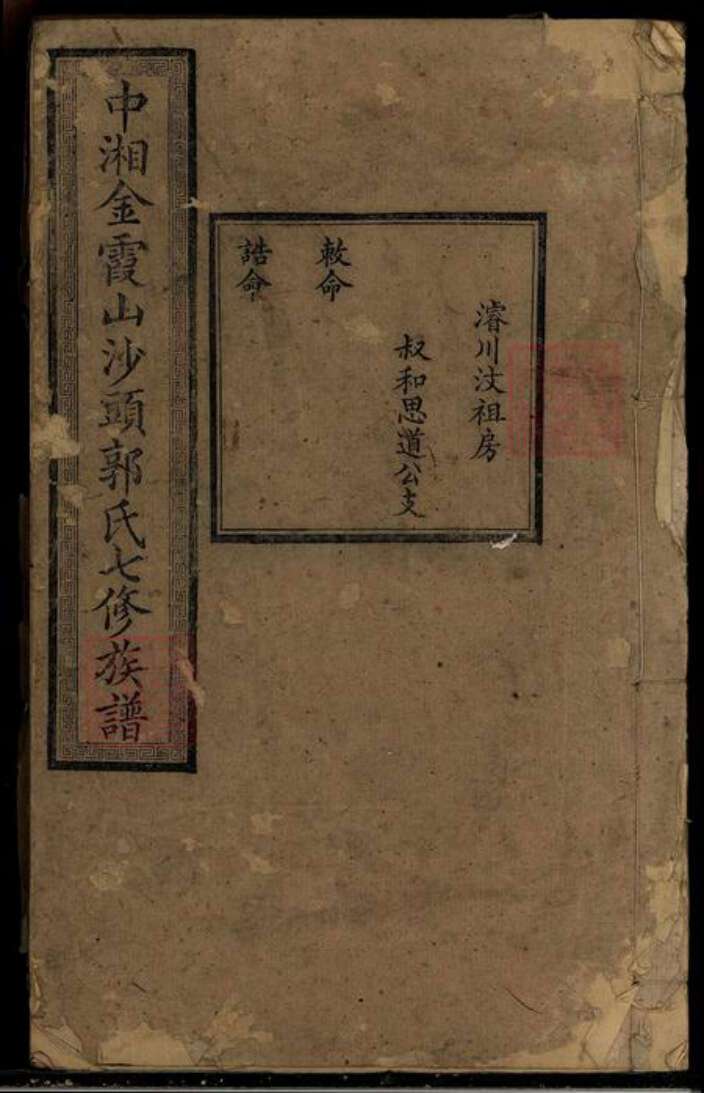 濬川汶祖房
叔和思道公支
敕命
誥命
中湘金霞山沙頭郭氏七修族譜